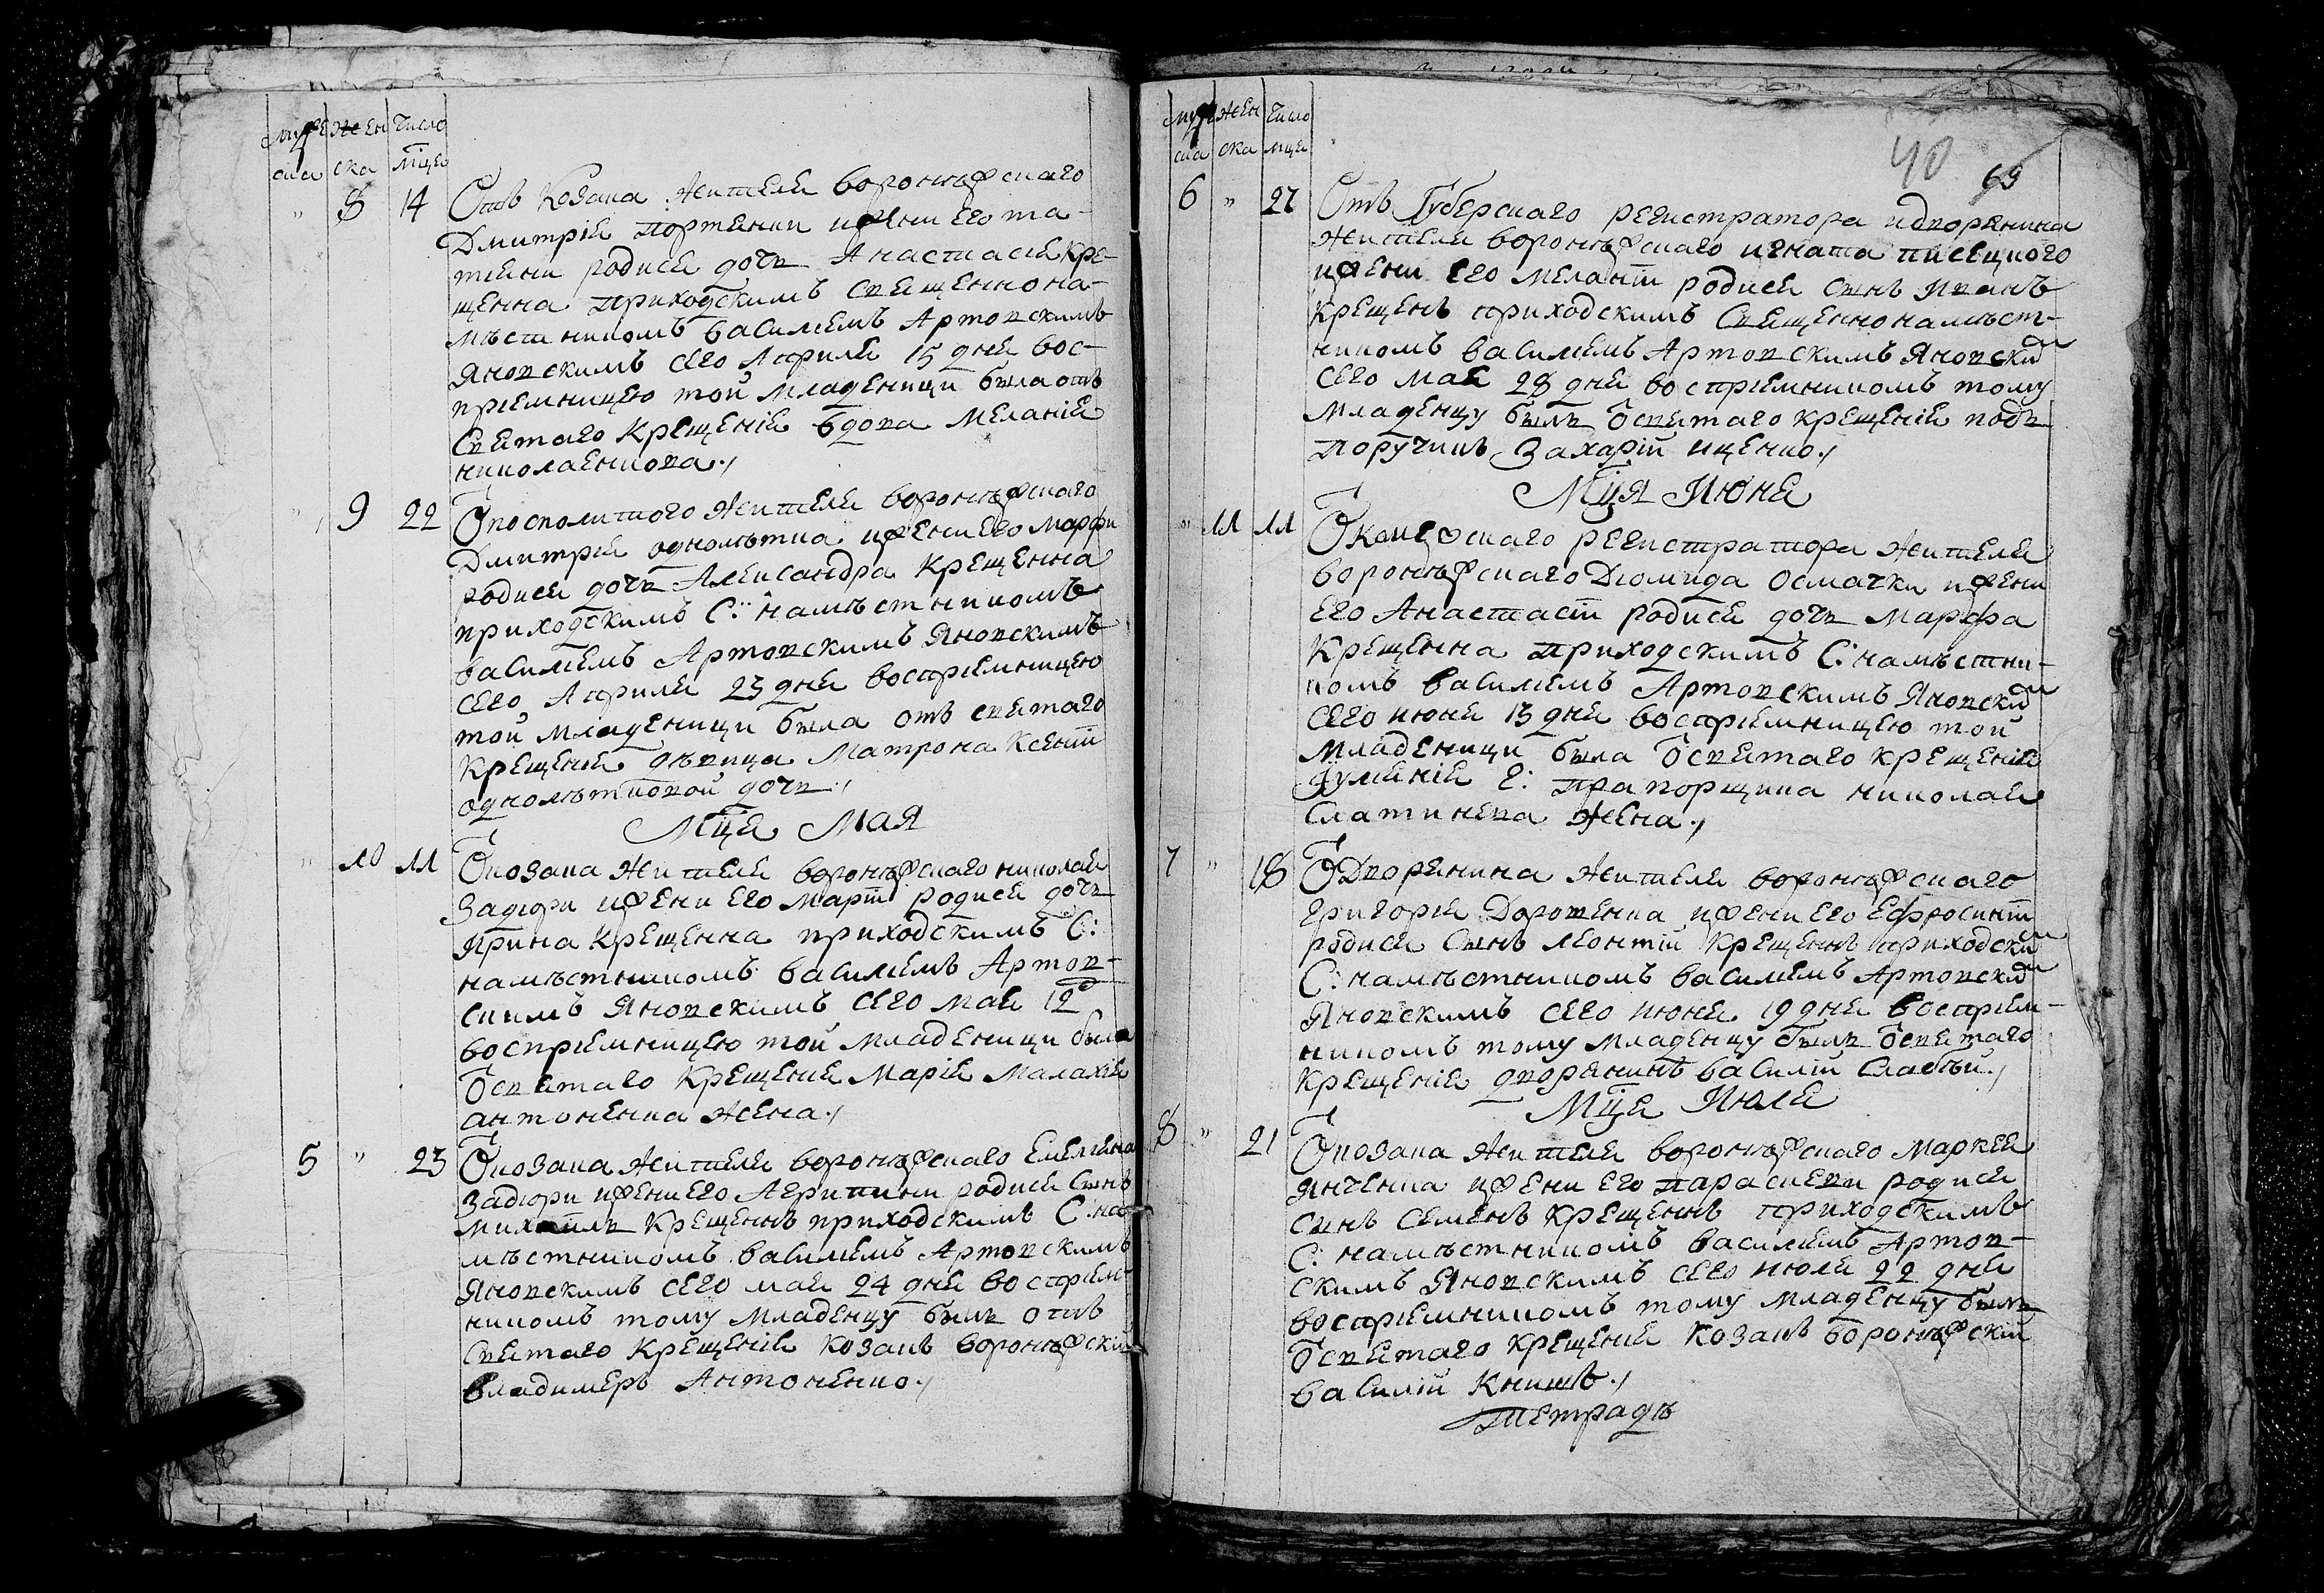 муже жен число
ска ска мцей
" 8 14 Отъ Козака жителя воронѣжскаго
Дмитрія портянки ижени его та-
тіяни родися дочь Анастасія кре-
щенна приходскимъ Священнона-
мѣстникомъ василіемъ Артовскимъ
Яновскимъ сего Априля 15 дня вос-
пріемницею той младеници была отъ
Святаго крещенія вдова Меланія
николаенкова
" 9 22 Ѿ посполитого жителя воронѣжскаго
Дмитрія однолѣтка ижени его марфи
родися дочь Александра крещенна
приходскимъ С: намѣстникомъ
василіемъ Артовскимъ Яновскимъ
сего Априля 23 дня воспріемницею
той младеници была отъ святаго
крещенія дѣвица Матрона Ксенїи
однолѣтковой дочь
Мця Мая
" 10 11 Ѿ козака жителя воронѣжскаго николая
Задюри ижени его Марїи родися дочь
Ирина крещенна приходскимъ С:
намѣстникомъ василіемъ Артов-
скимъ Яновскимъ сего мая 12
воспріемницею той младеници была
Ѿ святаго крещенія Марія Малахія
антоненка жена
5 " 23 Ѿ козака жителя воронѣжскаго Емеліяна
Задюри ижени его Агрипини родися Сынъ
михаилъ крещеннъ приходскимъ С: на-
мѣстникомъ василіемъ Артовскимъ
Яновскимъ сего мая 24 дня воспріем-
никомъ тому младенцу былъ отъ
Святаго крещенія козакъ воронѣжскій
владимеръ Антоненко
муж жен число
ска ска мця
40 69
6 " 27 Отъ Губерскаго регистратора идворянина
жителя воронѣжскаго игната писецкого
ижени его меланїи родися сынъ Иванъ
крещенъ приходскимъ Священнонамѣст-
никомъ василіемъ Артовскимъ Яновским
сего мая 28 дня воспріемникомъ тому
младенцу былъ Ѿ святаго крещенія подъ
поручикъ Захарій ищенко
Мця Июня
" 11 11 Ѿ канцержскаго регистратора жителя
воронѣжскаго Діомида осмачки ижени
его Анастасїи родися дочь Марфа
крещенна приходскимъ С: намѣстни-
комъ василіемъ Артовскимъ Яновским
сего июня 13 дня воспріемницею той
младеници была Ѿ святаго крещенія
Іуліянія Е: прапорщика николая
Слатинева жена
7 " 18 Ѿ Дворянина жителя воронѣжскаго
григорія Дорошенка ижени его Ефросинїи
родися Сынъ леонтій крещеннъ приходским
С: намѣстникомъ василіемъ Артовским
Яновскимъ сего июня 19 дня воспріем-
никомъ тому младенцу былъ Ѿ святаго
крещенія дворянинъ василій Слабѣй
Мця Июля
8 " 21 Ѿ козака жителя воронѣжскаго маркея
янченка ижени его параскеви родися
сынъ Семенъ крещеннъ приходскимъ
С: намѣстникомъ василіемъ Артов-
скимъ Яновскимъ сего июля 22 дня
воспріемникомъ тому младенцу былъ
Ѿ святаго крещенія козакъ воронѣжскій
василій Книшъ
тетрадь